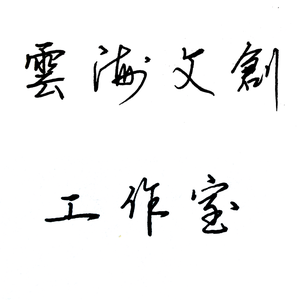 雲海文創
工作室